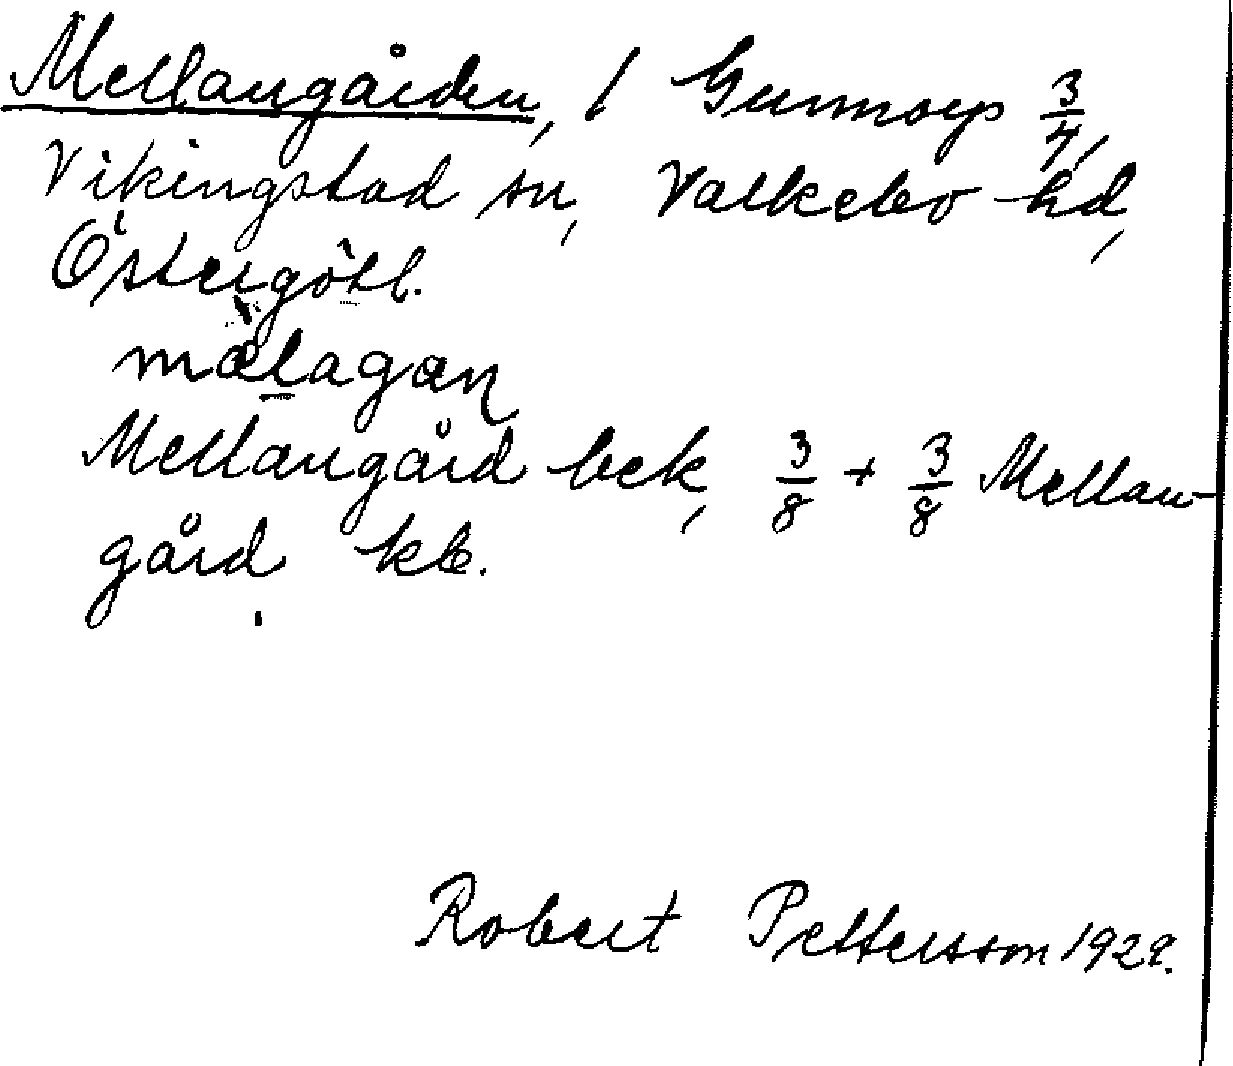 Mellangården, / Gunnorp 3/4,
Vikingstad sn, Valkebo hd,
Östergötl.
mälagan
Mellangård bek, 3/8 + 3/8 Mellan-
gård kb.
Robert Pettersson 1929.